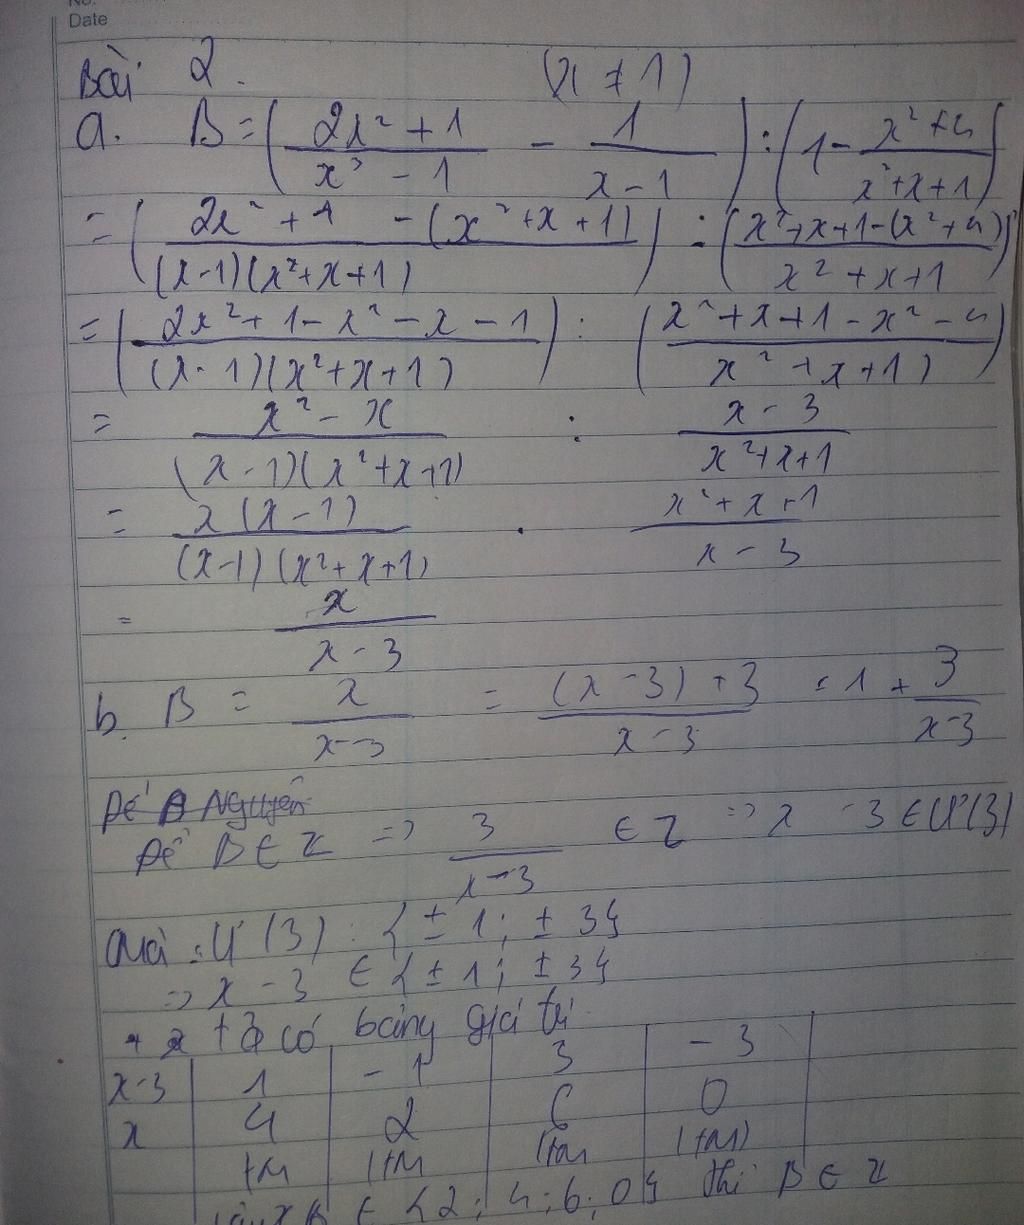 No.
Date
Bài 2. (x ≠ 1)
a. B = ( (2x² + 1)/(x³ - 1) - 1/(x - 1) ) : ( 1 - (x² + 4)/(x² + x + 1) )
= ( (2x² + 1 - (x² + x + 1))/((x-1)(x² + x + 1)) ) : ( (x² + x + 1 - (x² + 4))/(x² + x + 1) )
= ( (2x² + 1 - x² - x - 1)/((x-1)(x² + x + 1)) ) : ( (x² + x + 1 - x² - 4)/(x² + x + 1) )
= (x² - x)/((x-1)(x² + x + 1)) : (x - 3)/(x² + x + 1)
= (x(x-1))/((x-1)(x² + x + 1)) . (x² + x + 1)/(x - 3)
= x/(x - 3)
b. B = x/(x-3) = ((x-3) + 3)/(x-3) = 1 + 3/(x-3)
Để B Nguyên
Để B ∈ Z => 3/(x-3) ∈ Z => x - 3 ∈ Ư(3)
Mà : Ư(3) : {± 1; ± 3}
=> x - 3 ∈ {± 1; ± 3}
có bảng giá trị
x-3 1 -1 3 -3
x 4 2 6 0
TM (TM (TM (TM)
∈ {2; 4; 6; 0} thì B ∈ Z